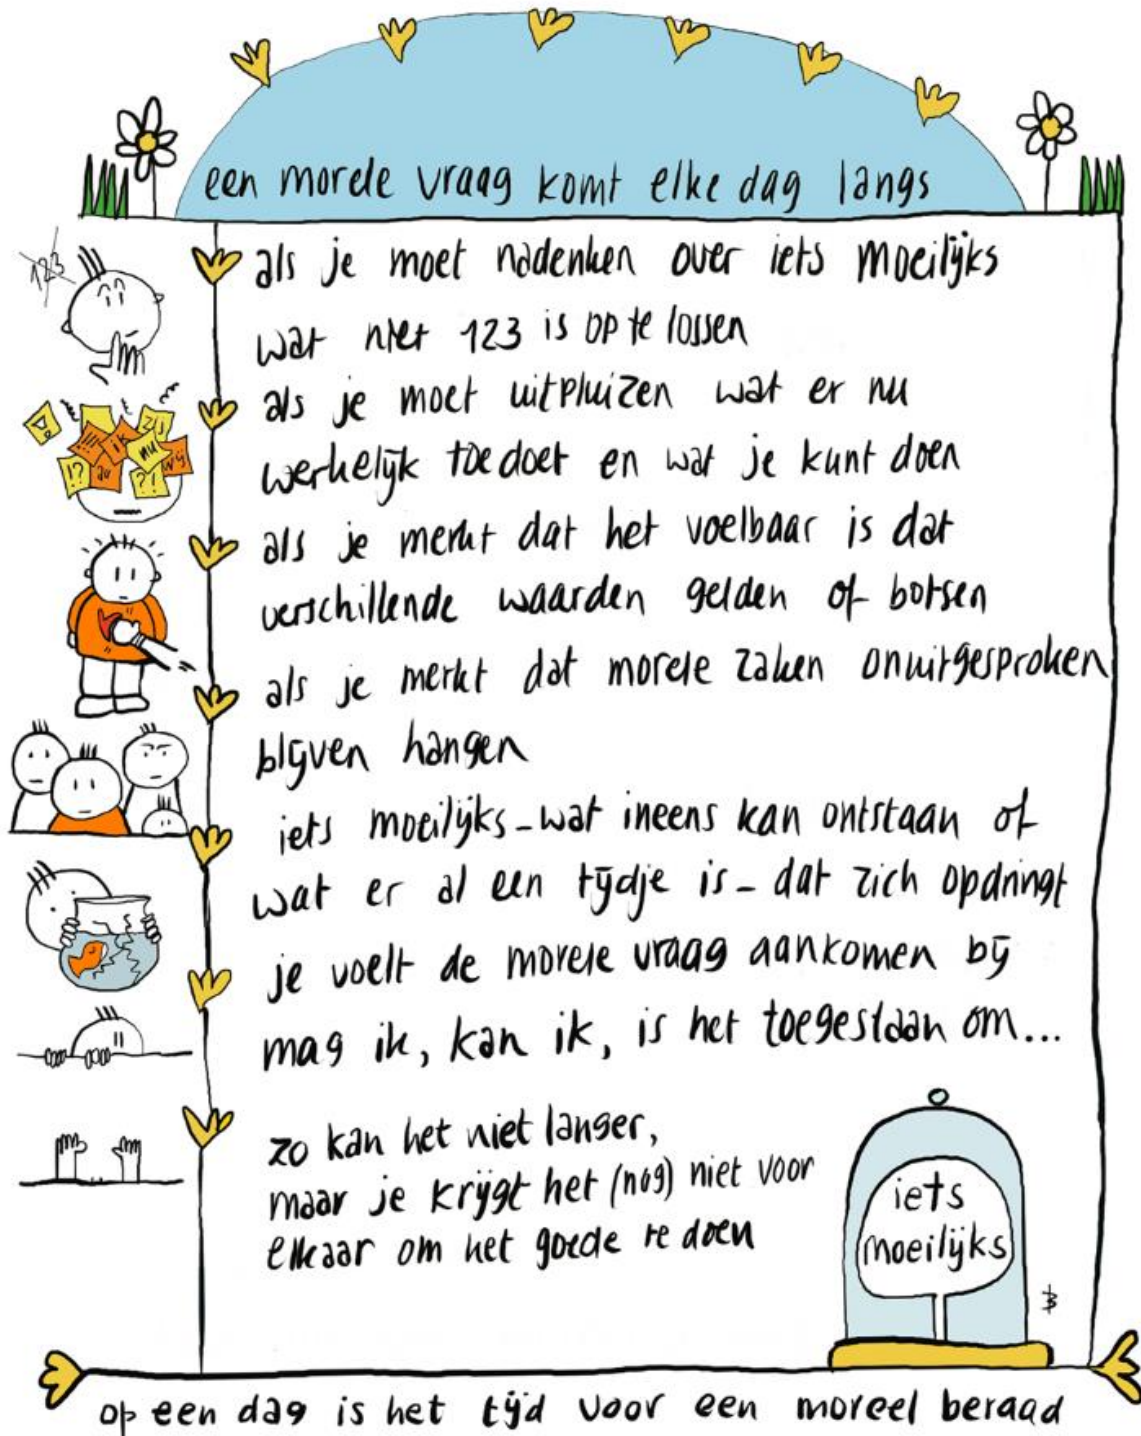 een morele vraag komt elke dag langs
123
als je moet nadenken over iets moeilijks
wat niet 123 is op te lossen
als je moet uitpluizen wat er nu
werkelijk toe doet en wat je kunt doen
!!! ik zij nu wij
!? au ?!
als je merkt dat het voelbaar is dat
verschillende waarden gelden of botsen
als je merkt dat morele zaken onuitgesproken
blijven hangen
iets moeilijks - wat ineens kan ontstaan of
wat er al een tijdje is - dat zich opdringt
je voelt de morele vraag aankomen bij
mag ik, kan ik, is het toegestaan om...
zo kan het niet langer,
maar je krijgt het (nog) niet voor
elkaar om het goede te doen
iets
moeilijks
op een dag is het tijd voor een moreel beraad